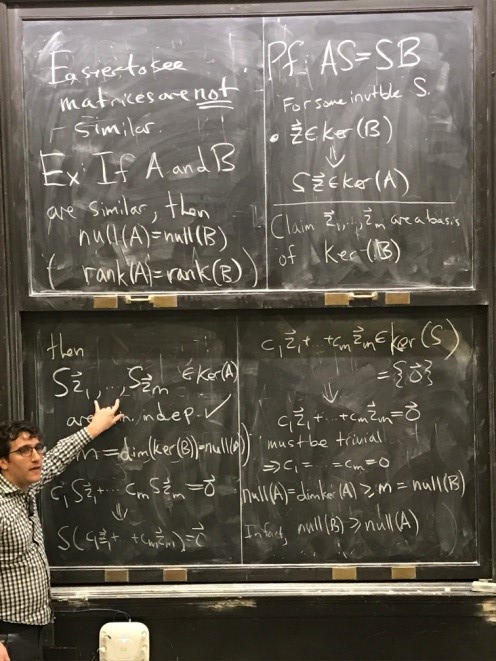 Easier to see
matrices are not
similar.
Ex: If A and B
are similar, then
null(A)=null(B)
(rank(A)=rank(B))
Pf: AS=SB
For some invtble S.
• z⃗ ∈ Ker(B)
⇓
Sz⃗ ∈ Ker(A)
Claim z⃗₁,..,z⃗ₘ are a basis
of Ker(B)
then
Sz⃗₁,...,Sz⃗ₘ ∈ Ker(A)
are indep. ✓
m = dim(ker(B))=null(B)
c₁Sz⃗₁+... cₘSz⃗ₘ=0⃗
⇓
S(c₁z⃗₁+ +cₘz⃗ₘ)=0⃗
c₁z⃗₁+..+cₘz⃗ₘ ∈ ker(S)
={0⃗}
⇓
c₁z⃗₁+..+cₘz⃗ₘ=0⃗
must be trivial
⇒c₁=...=cₘ=0
null(A)=dim ker(A) ≥ m = null(B)
In fact, null(B) ≥ null(A)